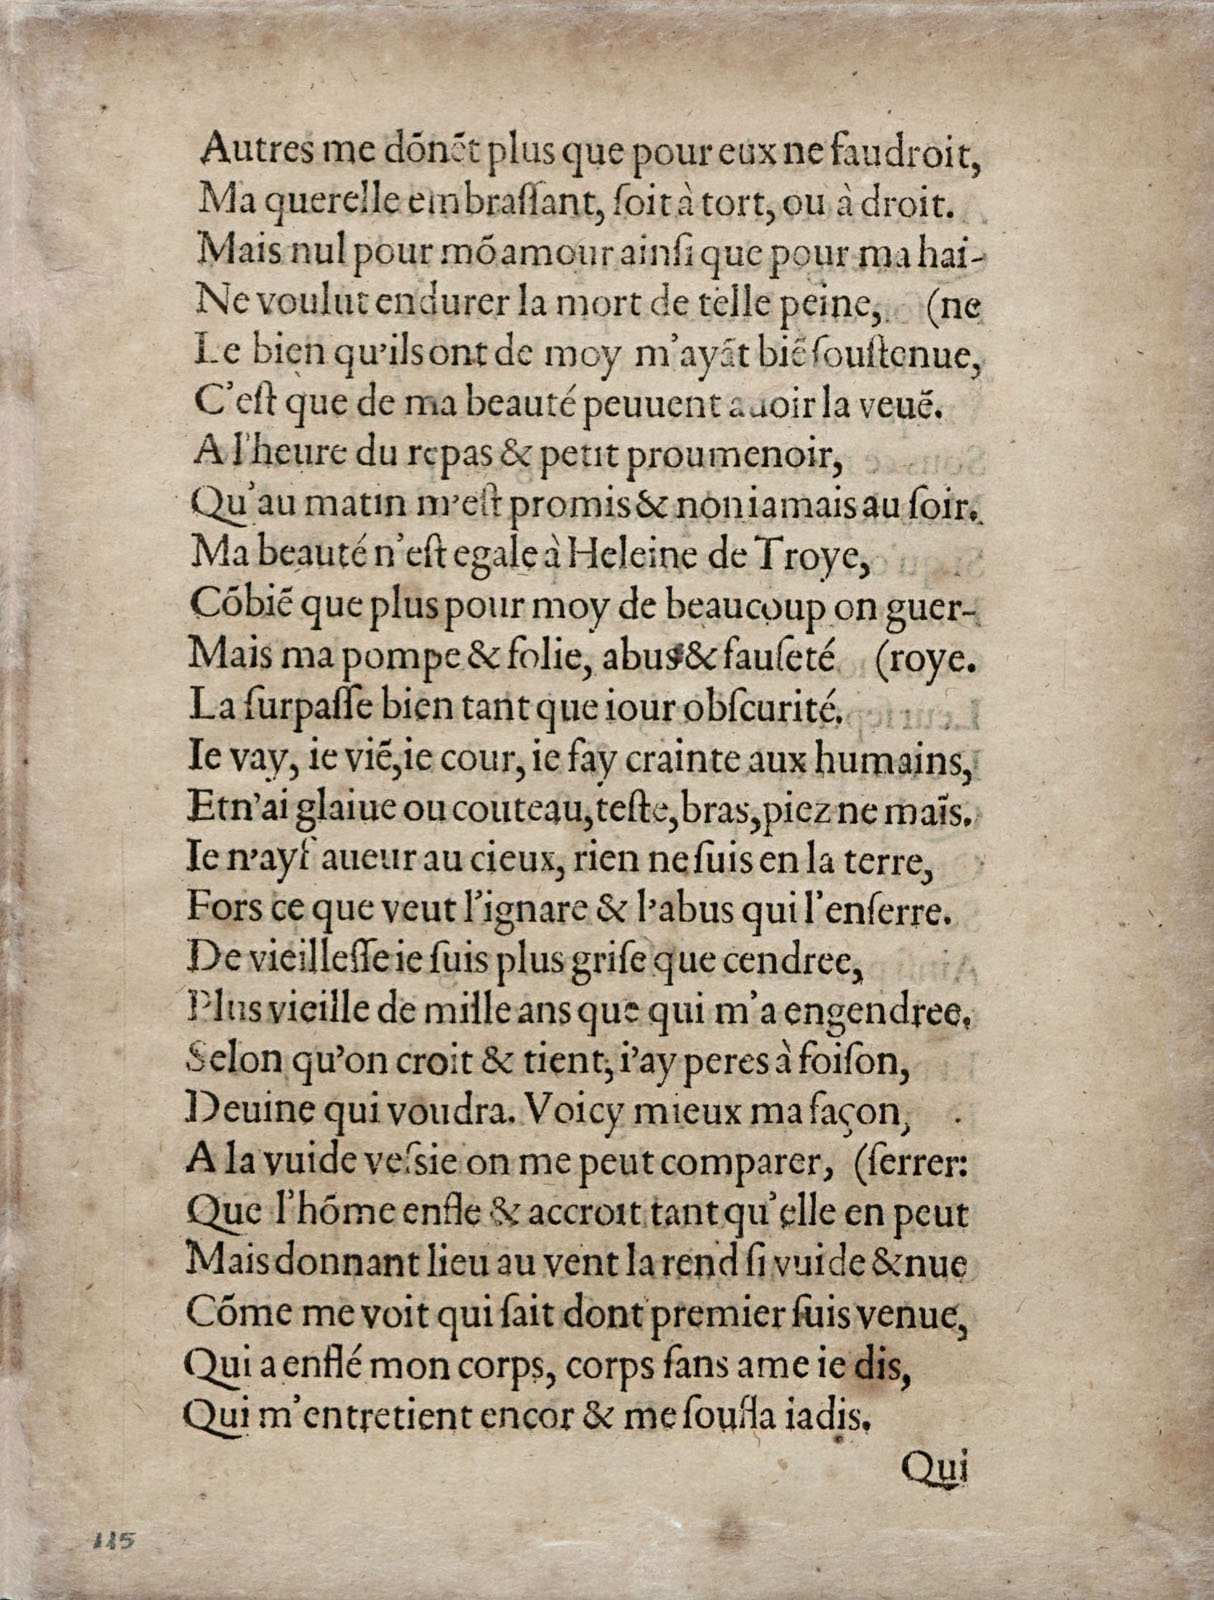 Autres me dõnẽt plus que pour eux ne faudroit,
Ma querelle embraſſant, ſoit à tort, ou à droit.
Mais nul pour mõ amour ainſi que pour ma hai-
Ne voulut endurer la mort de telle peine, (ne
Le bien qu'ils ont de moy m'ayãt biẽ ſouſtenue,
C'eſt que de ma beauté peuuent auoir la veuẽ.
A l'heure du repas & petit proumenoir,
Qu'au matin m'eſt promis & non iamais au ſoir.
Ma beauté n'eſt egale à Heleine de Troye,
Cõbiẽ que plus pour moy de beaucoup on guer-
Mais ma pompe & folie, abus & fauſeté (roye.
La ſurpaſſe bien tant que iour obſcurité.
Ie vay, ie viẽ, ie cour, ie fay crainte aux humains,
Et n'ai glaiue ou couteau, teſte, bras, piez ne maĩs.
Ie n'ay faueur au cieux, rien ne ſuis en la terre,
Fors ce que veut l'ignare & l'abus qui l'enſerre.
De vieilleſſe ie ſuis plus griſe que cendree,
Plus vieille de mille ans que qui m'a engendree.
Selon qu'on croit & tient, i'ay peres à foiſon,
Deuine qui voudra. Voicy mieux ma façon,
A la vuide veſsie on me peut comparer, (ſerrer:
Que l'hõme enfle & accroit tant qu'elle en peut
Mais donnant lieu au vent la rend ſi vuide & nue
Cõme me voit qui ſait dont premier ſuis venue,
Qui a enflé mon corps, corps ſans ame ie dis,
Qui m'entretient encor & me ſoufla iadis.
Qui
115